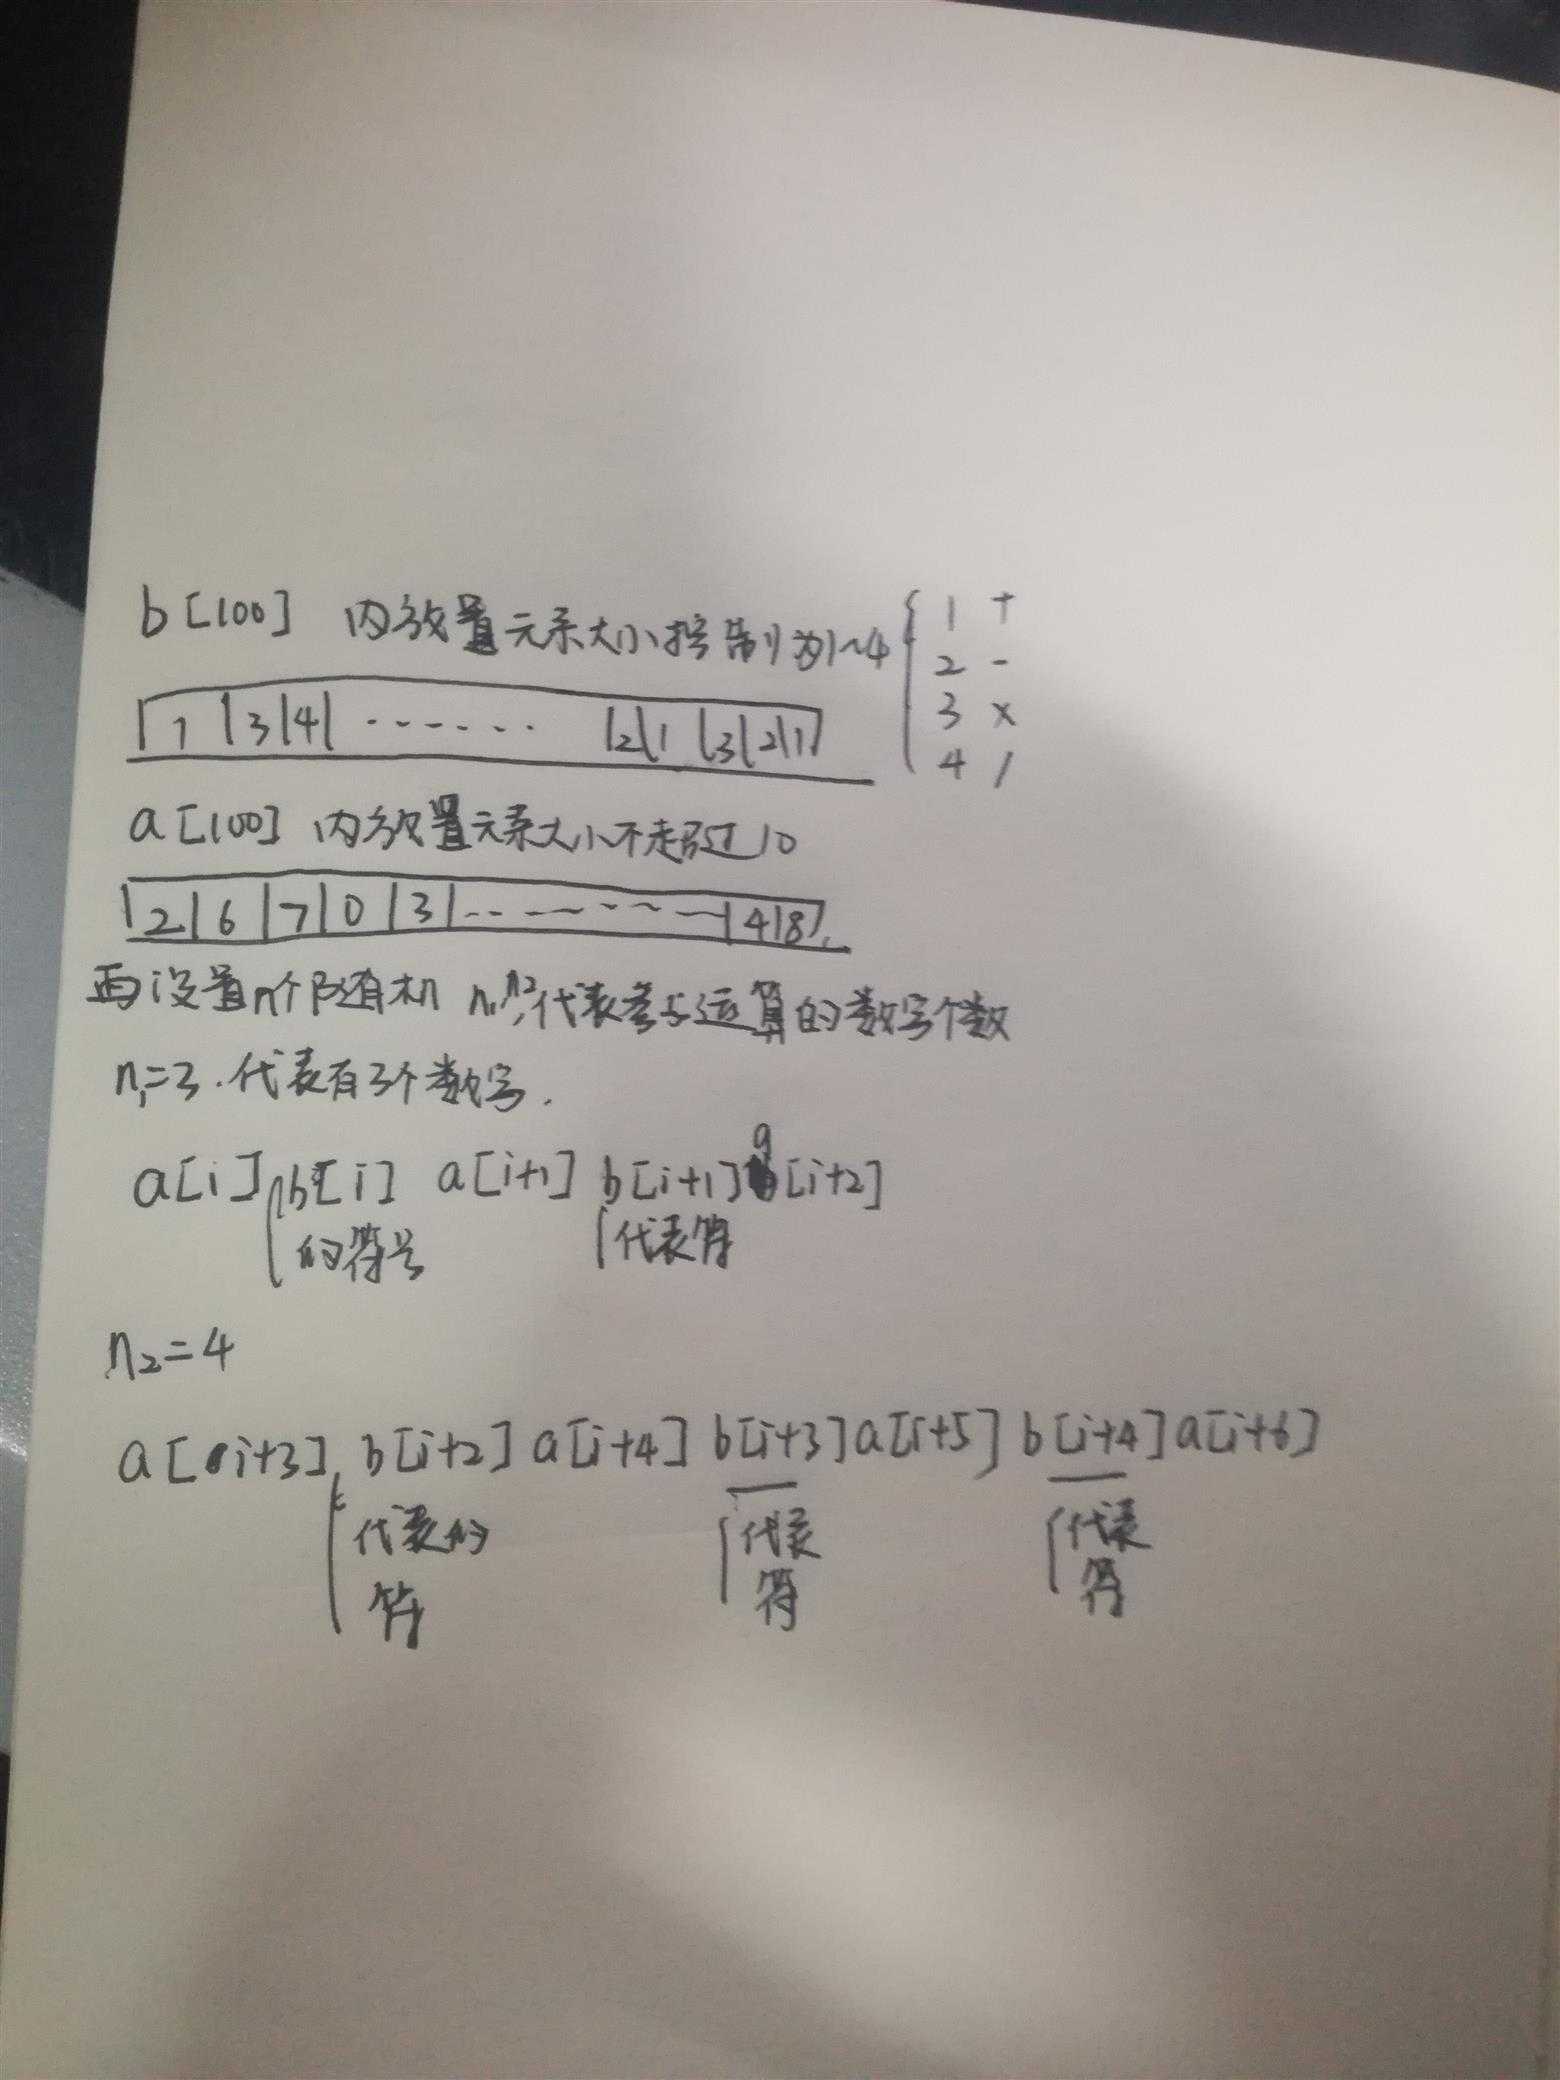 b[100] 内放置元素大小控制为1~4 { 1 +
2 -
3 ×
4 /
1 | 3 | 4 | ······ | 2 | 1 | 3 | 2 | 1
a[100] 内放置元素大小不超过10
2 | 6 | 7 | 0 | 3 | ······ | 4 | 8
再设置n个随机 n₁,n₂,代表参与运算的数字个数
n₁=3.代表有3个数字.
a[i] b[i] a[i+1] b[i+1] a[i+2]
的符号 代表符
n₂=4
a[i+3] b[i+2] a[i+4] b[i+3] a[i+5] b[i+4] a[i+6]
代表的 代表 代表
符 符 符